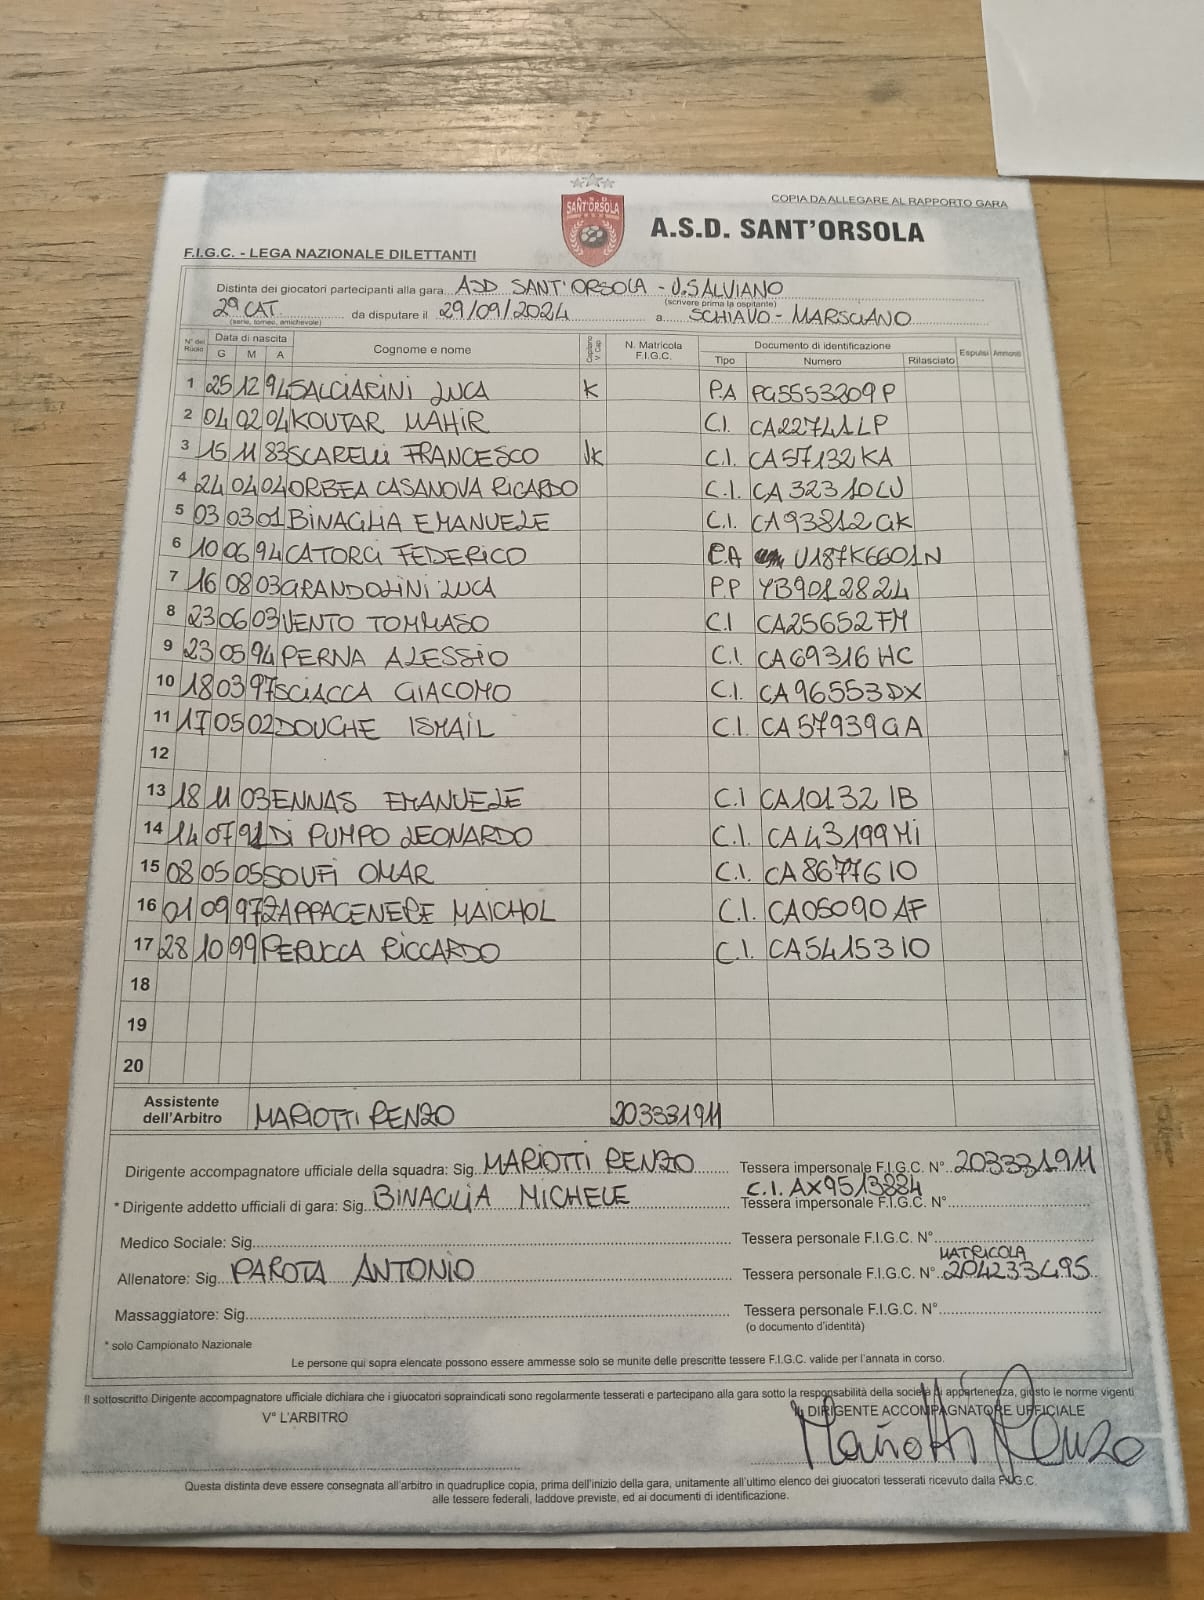 COPIA DA ALLEGARE AL RAPPORTO GARA
A.S.D. SANT'ORSOLA
A.S.D. SANT'ORSOLA
F.I.G.C. - LEGA NAZIONALE DILETTANTI
Distinta dei giocatori partecipanti alla gara: ASD SANT'ORSOLA - U.SALVIANO
(scrivere prima la ospitante)
2ª CAT. da disputare il 29/09/2024 a SCHIAVO - MARSCIANO
(serie, torneo, amichevole)
N° del Ruolo Data di nascita G M A Cognome e nome Capitano V. Cap N. Matricola F.I.G.C. Documento di identificazione Tipo Numero Rilasciato Espulsi Ammoniti
1 25 12 94 SALCIARINI LUCA K P.A PG5553209P
2 04 02 04 KOUTAR MAHIR C.I. CA22741LP
3 15 11 83 SCARELLI FRANCESCO VK C.I. CA57132KA
4 24 04 04 ORBEA CASANOVA RICARDO C.I. CA32310LU
5 03 03 01 BINAGLIA EMANUELE C.I. CA93812GK
6 10 06 94 CATORCI FEDERICO P.A U187K6601N
7 16 08 03 GRANDOLINI LUCA P.P YB9012824
8 23 06 03 VENTO TOMMASO C.I CA25652FM
9 23 05 94 PERNA ALESSIO C.I. CA69316HC
10 18 03 97 SCIACCA GIACOMO C.I. CA96553DX
11 17 05 02 DOUCHE ISMAIL C.I. CA57939GA
12
13 18 11 03 ENNAS EMANUELE C.I CA10132IB
14 14 07 91 DI PUMPO LEONARDO C.I. CA43199MI
15 08 05 05 SOUFI OMAR C.I. CA86776IO
16 01 09 97 ZAPPACENERE MAICHOL C.I. CA05090AF
17 28 10 99 PERUCCA RICCARDO C.I. CA54153IO
18
19
20
Assistente dell'Arbitro MARIOTTI RENZO 203331911
Dirigente accompagnatore ufficiale della squadra: Sig. MARIOTTI RENZO Tessera impersonale F.I.G.C. N° 203331911
C.I. AX9513884
* Dirigente addetto ufficiali di gara: Sig. BINAGLIA MICHELE Tessera impersonale F.I.G.C. N°
Medico Sociale: Sig. Tessera personale F.I.G.C. N°
MATRICOLA
Allenatore: Sig. PAROTA ANTONIO Tessera personale F.I.G.C. N° 204233495
Massaggiatore: Sig. Tessera personale F.I.G.C. N°
(o documento d'identità)
* solo Campionato Nazionale
Le persone qui sopra elencate possono essere ammesse solo se munite delle prescritte tessere F.I.G.C. valide per l'annata in corso.
Il sottoscritto Dirigente accompagnatore ufficiale dichiara che i giuocatori sopraindicati sono regolarmente tesserati e partecipano alla gara sotto la responsabilità della società di appartenenza, giusto le norme vigenti
V° L'ARBITRO IL DIRIGENTE ACCOMPAGNATORE UFFICIALE
Mariotti Renzo
Questa distinta deve essere consegnata all'arbitro in quadruplice copia, prima dell'inizio della gara, unitamente all'ultimo elenco dei giuocatori tesserati ricevuto dalla F.I.G.C.
alle tessere federali, laddove previste, ed ai documenti di identificazione.